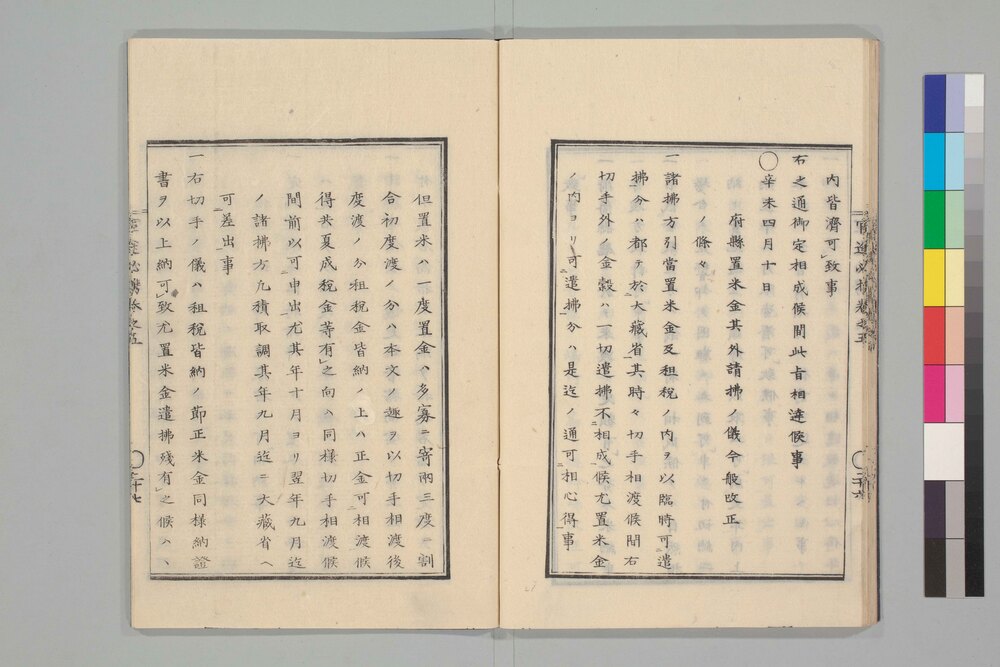 内皆濟可致事
右之通御定相成候間此旨相達候事
〇辛未四月十日
府縣置米金其外請拂ノ儀今般改正
ノ條々
一諸拂方引當置米金及租税ノ内ヲ以臨時可遣
拂分ハ都テ於大藏省其時々切手相渡候間右
切手外ノ金穀ハ一切遣拂不相成候尤置米金
ノ内ヨリ可遣拂分ハ是迄ノ通可相心得事
二十六
但置米ハ一度置金ハ多寡ニ寄兩三度ニ割
合初度渡ノ分ハ本文ノ趣ヲ以切手相渡後
度渡ノ分租税金皆納ノ上ハ正金可相渡候
得共夏成税金等有之向ハ同樣切手相渡候
間前以可申出尤其年十月ヨリ翌年九月迄
ノ諸拂方凡積取調其年九月迄ニ大藏省ヘ
可差出事
一右切手ノ儀ハ租税皆納ノ節正米金同樣納證
書ヲ以上納可致尤置米金遣拂殘有之候ハヽ
二十七